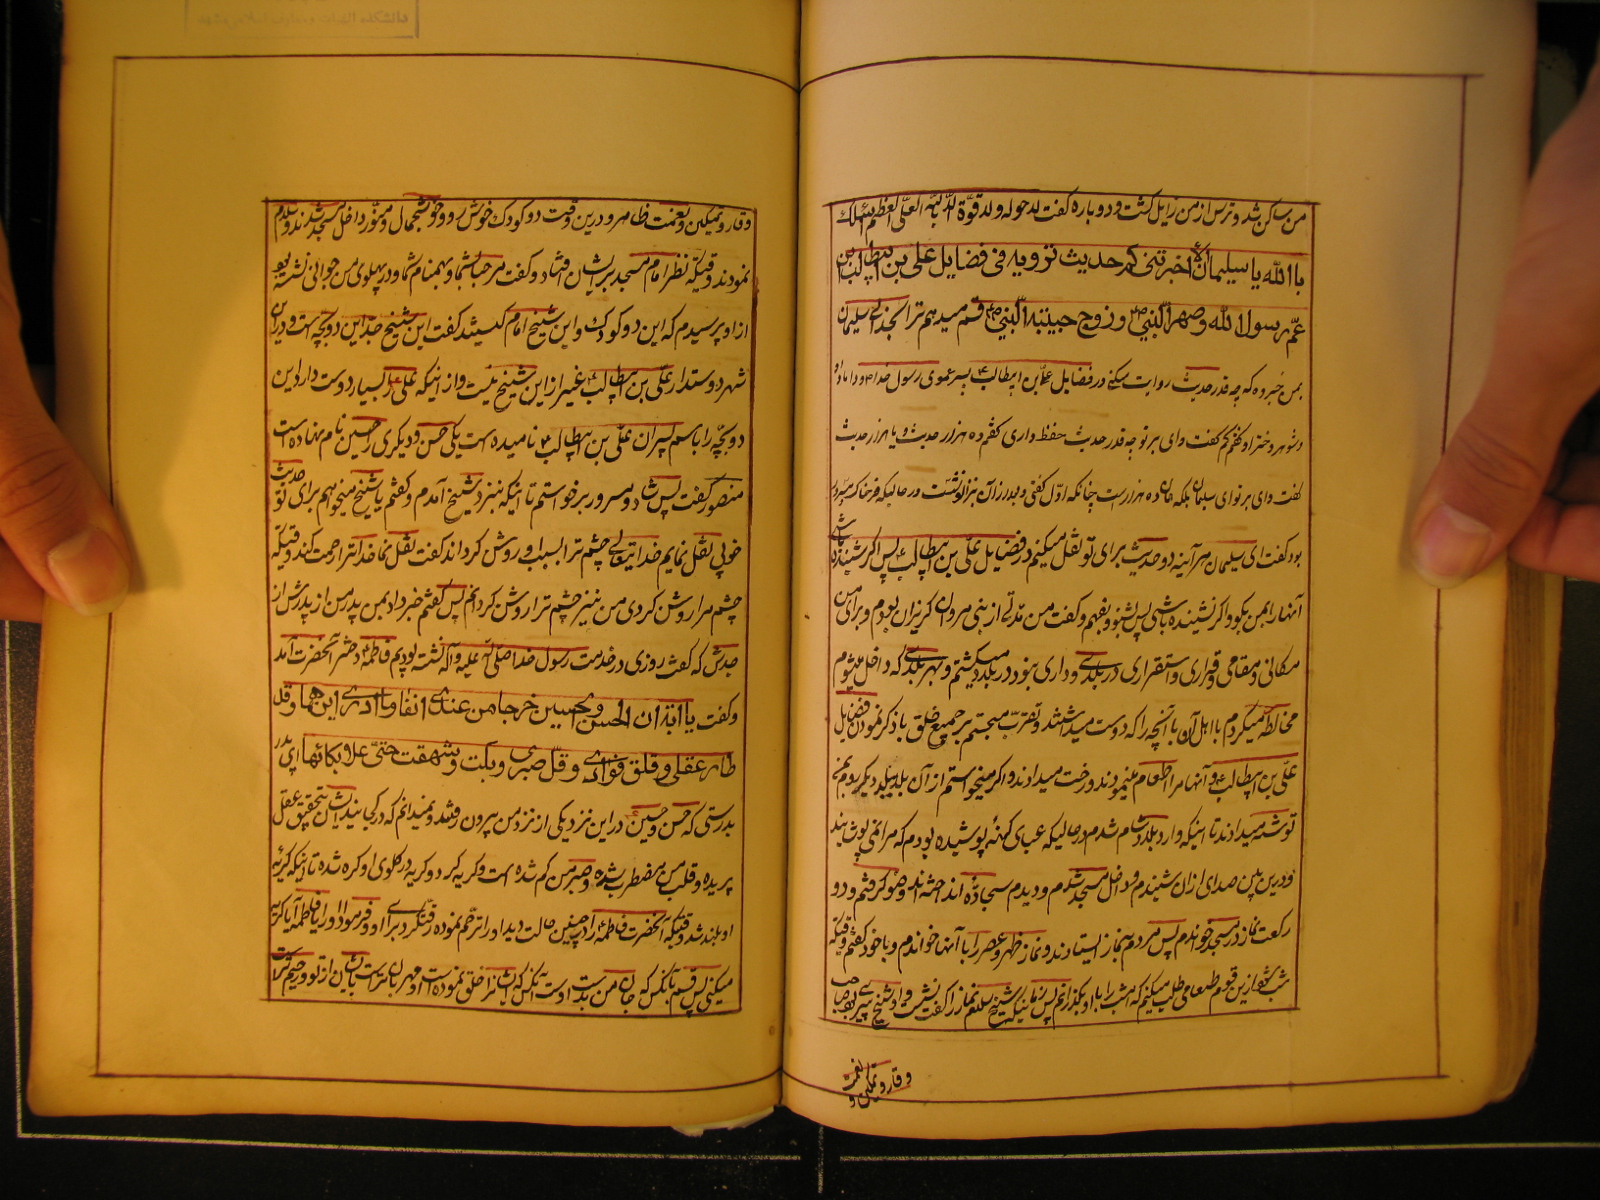 من ساکن شد و ترس از من زایل گشت و دوباره گفت لا حول و لا قوة الا بالله العلی العظیم اسئلک
بالله یا سلیمان الا اخبرتنی کم حدیث ترویه فی فضایل علی بن ابیطالب ابن
عم رسول الله و صهر النبی و زوج حبیبة النبی قسم میدهم ترا بخدا ای سلیمان
بمن خبر ده که چه قدر حدیث روایت میکنی در فضایل علی بن ابیطالب پسر عموی رسول خدا و داماد او
و شوهر دختر او گفتم کم گفت وای بر تو چه قدر حدیث حفظ داری گفتم ده هزار حدیث و یا هزار حدیث
گفت وای بر تو ای سلیمان بلکه همان ده هزار است چنانکه اول گفتی و بدو زانو نشست در حالیکه فرحناک و مسرور
بود گفت ای سلیمان هر آینه دو حدیث برای تو نقل میکنم در فضایل علی بن ابیطالب پس اگر شنیده باشی
آنها را بمن بگو و اگر نشنیده باشی پس بشنو و بفهم و گفت من مدتی از بنی مروان گریزان بودم و برای من
مکانی و مقامی و قراری و استقراری در بلدی و داری نبود در بلاد میگشتم و بهر بلدی که داخل میشوم
مخالطه میکردم با اهل آن با آنچه را که دوست میداشتند و تقرب میجستم بر جمیع خلق با ذکر نمودن فضایل
علی بن ابیطالب و آنها مرا اطعام مینمودند و رخت میدادند و اگر میخواستم از آن بلد ببلد دیگر روم بمن
توشه میدادند تا اینکه وارد بلد شام شدم در حالیکه عبای کهنه پوشیده بودم که مرا نمی پوشاند
و درین بین صدای اذان شنیدم و داخل مسجد شدم و دیدم سجاده انداخته اند وضو گرفتم و دو
رکعت نماز در مسجد خواندم پس مردم بنماز ایستادند و نماز ظهر و عصر را با آنها خواندم و با خود گفتم وقتیکه
شب شد از این قوم طعامی طلب میکنم که امشب را با او بگذرانم پس زمانیکه شیخ سلام نماز را گفت نشست و او شیخ پیری بود صاحب
وقار و تمکین و نعمت
وقار و تمکین و نعمت ظاهر و درین وقت دو کودک خوش رو و خوشجمال و منور داخل مسجد شدند و سلام
نمودند وقتیکه نظر امام مسجد بر ایشان افتاد و گفت مرحبا بشما و بهمنام شما و در پهلوی من جوانی نشسته بود
از او پرسیدم که این دو کودک و این شیخ امام کیستند گفت این شیخ جد این دو بچه است و در این
شهر دوستدار علی بن ابیطالب غیر از این شیخ نیست و از اینکه علی را بسیار دوست دارد این
دو بچه را باسم پسران علی بن ابیطالب نامیده است یکی حسن و دیگری را حسین نام نهاده است
منصور گفت پس شاد و مسرور برخواستم تا اینکه بنزد شیخ آمدم و گفتم یا شیخ میخواهم برای تو حدیث
خوبی نقل نمایم خدایتعالی چشم ترا بسبب او روشن گرداند گفت نقل نما خدا ترا رحمت کند وقتیکه
چشم مرا روشن کردی من نیز چشم ترا روشن گردانم پس گفتم خبر داد بمن پدر من از پدرش از
جدش که گفت روزی در خدمت رسول خدا صلی الله علیه و آله نشسته بودیم فاطمه دختر آنحضرت آمد
و گفت یا ابة ان الحسن و الحسین خرجا من عندی انفا و ما ادری این هما و قد
طار عقلی و قلق فؤادی و قل صبری و بکت و شهقت حتی علا بکائها ای پدر
بدرستی که حسن و حسین در این نزدیکی از نزد من بیرون رفتند و نمیدانم که در کجایند ایشان بتحقیق عقل
پریده و قلب من مضطرب شده و صبر من کم شده است و گریه کرد و گریه در گلوی او گره شده تا اینکه گریه
او بلند شد وقتیکه آنحضرت فاطمه را در چنین حالت دید او را ترحم نموده رقت کرد برای او و فرمود او را یا فاطمه آیا گریه
میکنی پس قسم بآنکس که جان من بدست اوست آنکس که ایشانرا خلق نموده است او مهربان تر است بایشان از تو و رحیم تر است